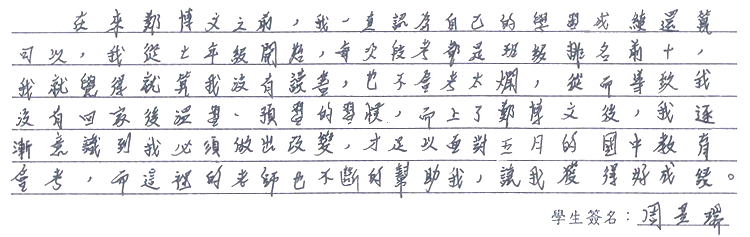 在來鄭博文之前，我一直認為自己的學習成績還算
可以，我從七年級開始，每次段考都是班級排名前十，
我就覺得就算我沒有讀書，也不會考太爛，從而導致我
沒有回家後溫習、預習的習慣，而上了鄭博文後，我逐
漸意識到我必須做出改變，才足以面對五月的國中教育
會考，而這裡的老師也不斷的幫助我，讓我獲得好成績。
學生簽名：周